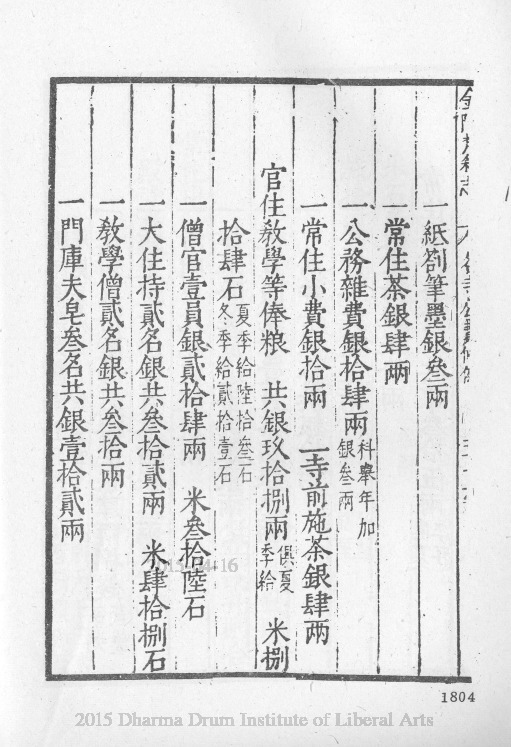 一紙劄筆墨銀叁兩
一常住茶銀肆兩
一公務雜費銀拾肆兩 科舉年加
銀叁兩
一常住小費銀拾兩 一寺前施茶銀肆兩
官住教學等俸粮 共銀玖拾捌兩 俱夏
季給 米捌
拾肆石 夏季給陸拾叁石
冬季給貳拾壹石
一僧官壹員銀貳拾肆兩 米叁拾陸石
一大住持貳名銀共叁拾貳兩 米肆拾捌石
一教學僧貳名銀共叁拾兩
一門庫夫皂叁名共銀壹拾貳兩
1804
2015 Dharma Drum Institute of Liberal Arts